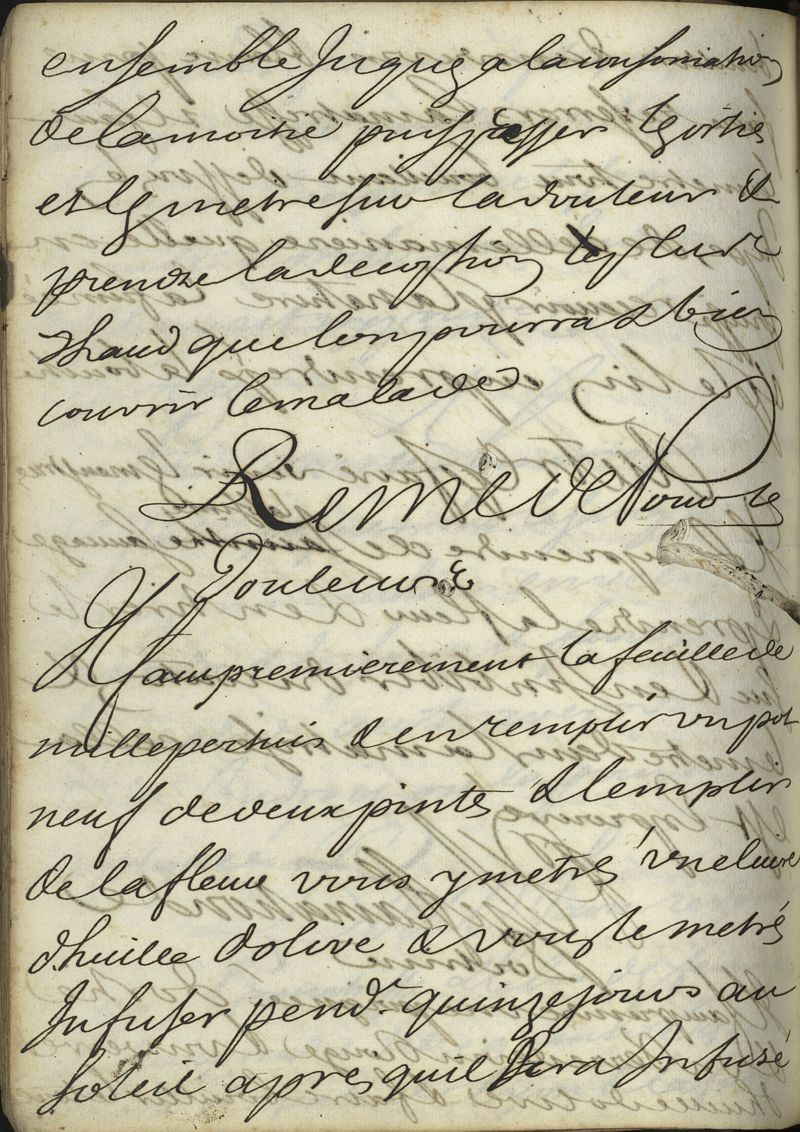 ensemble Jusques a la consomation
de la moitie puis passer les orties
et les metre sur la douleur &
prendre la decoction le plus
chaud que lon pourra & bien
couvrir le malade
Remede Pour les
Douleurs
Il faut premierement la feuille de
millepertuis & en remplir un pot
neuf de deux pintes & lemplir
de la fleur vous y metrés une livre
dhuille dolive & vous le metrés
Jnfuser pendt quinze jours au
soleil apres quil sera Jnfusé